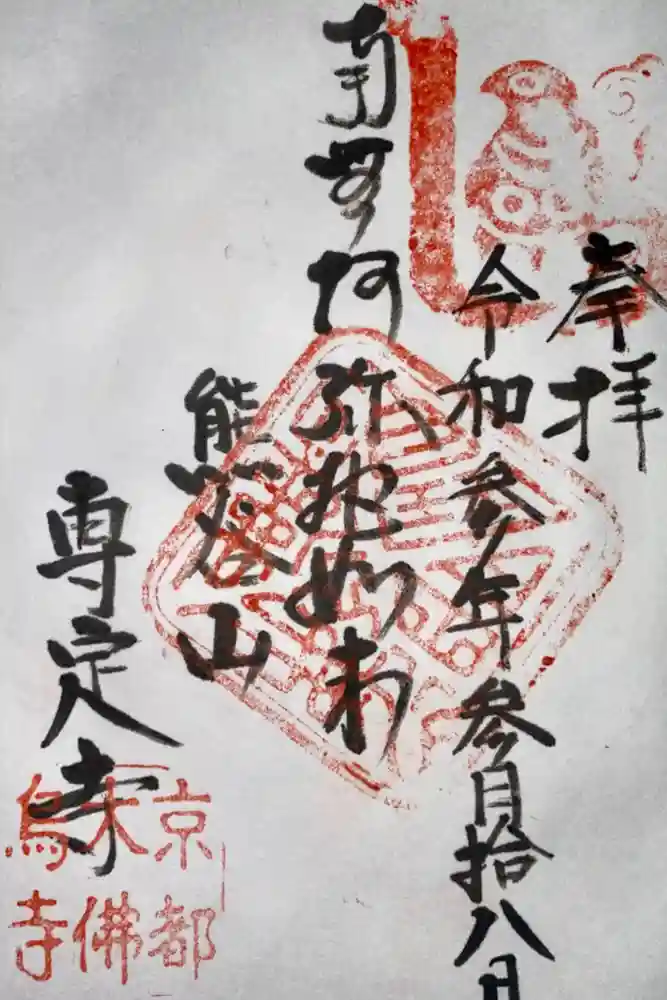 奉拝
令和参年参月拾八日
南無阿弥陀如来
熊谷山
専定寺
京都
大佛
烏寺